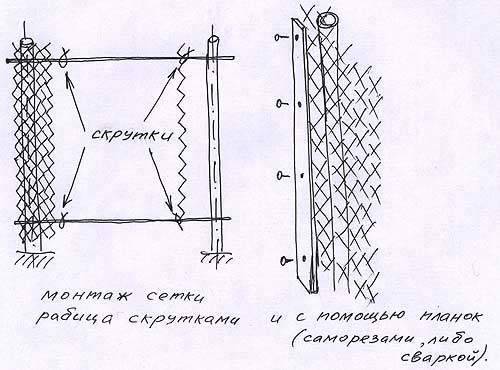 скрутки
монтаж сетки
рабица скрутками
и с помощью планок
(саморезами, либо
сваркой).